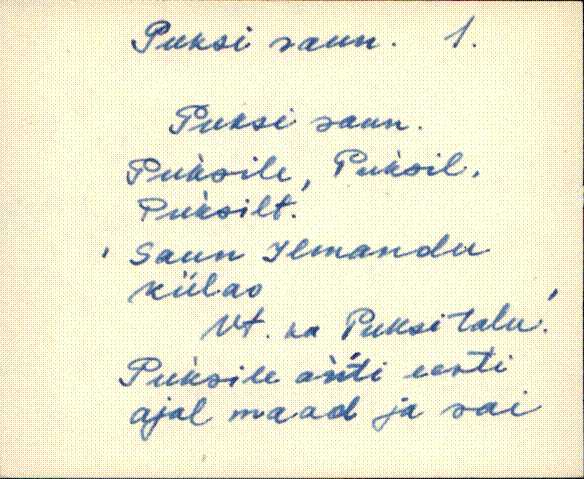 Puksi saun. 1.
Puksi saun.
Puk̀sile, Puk̀sil,
Puk̀silt.
'Saun Ilmandu
külas
Vt. ka Puksi talu.'
Puk̀sile ań̀ti eesti
ajal maad ja sai